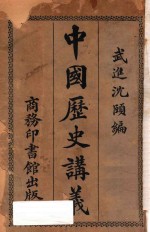 武進沈頤編
中國歷史講義
商務印書館出版